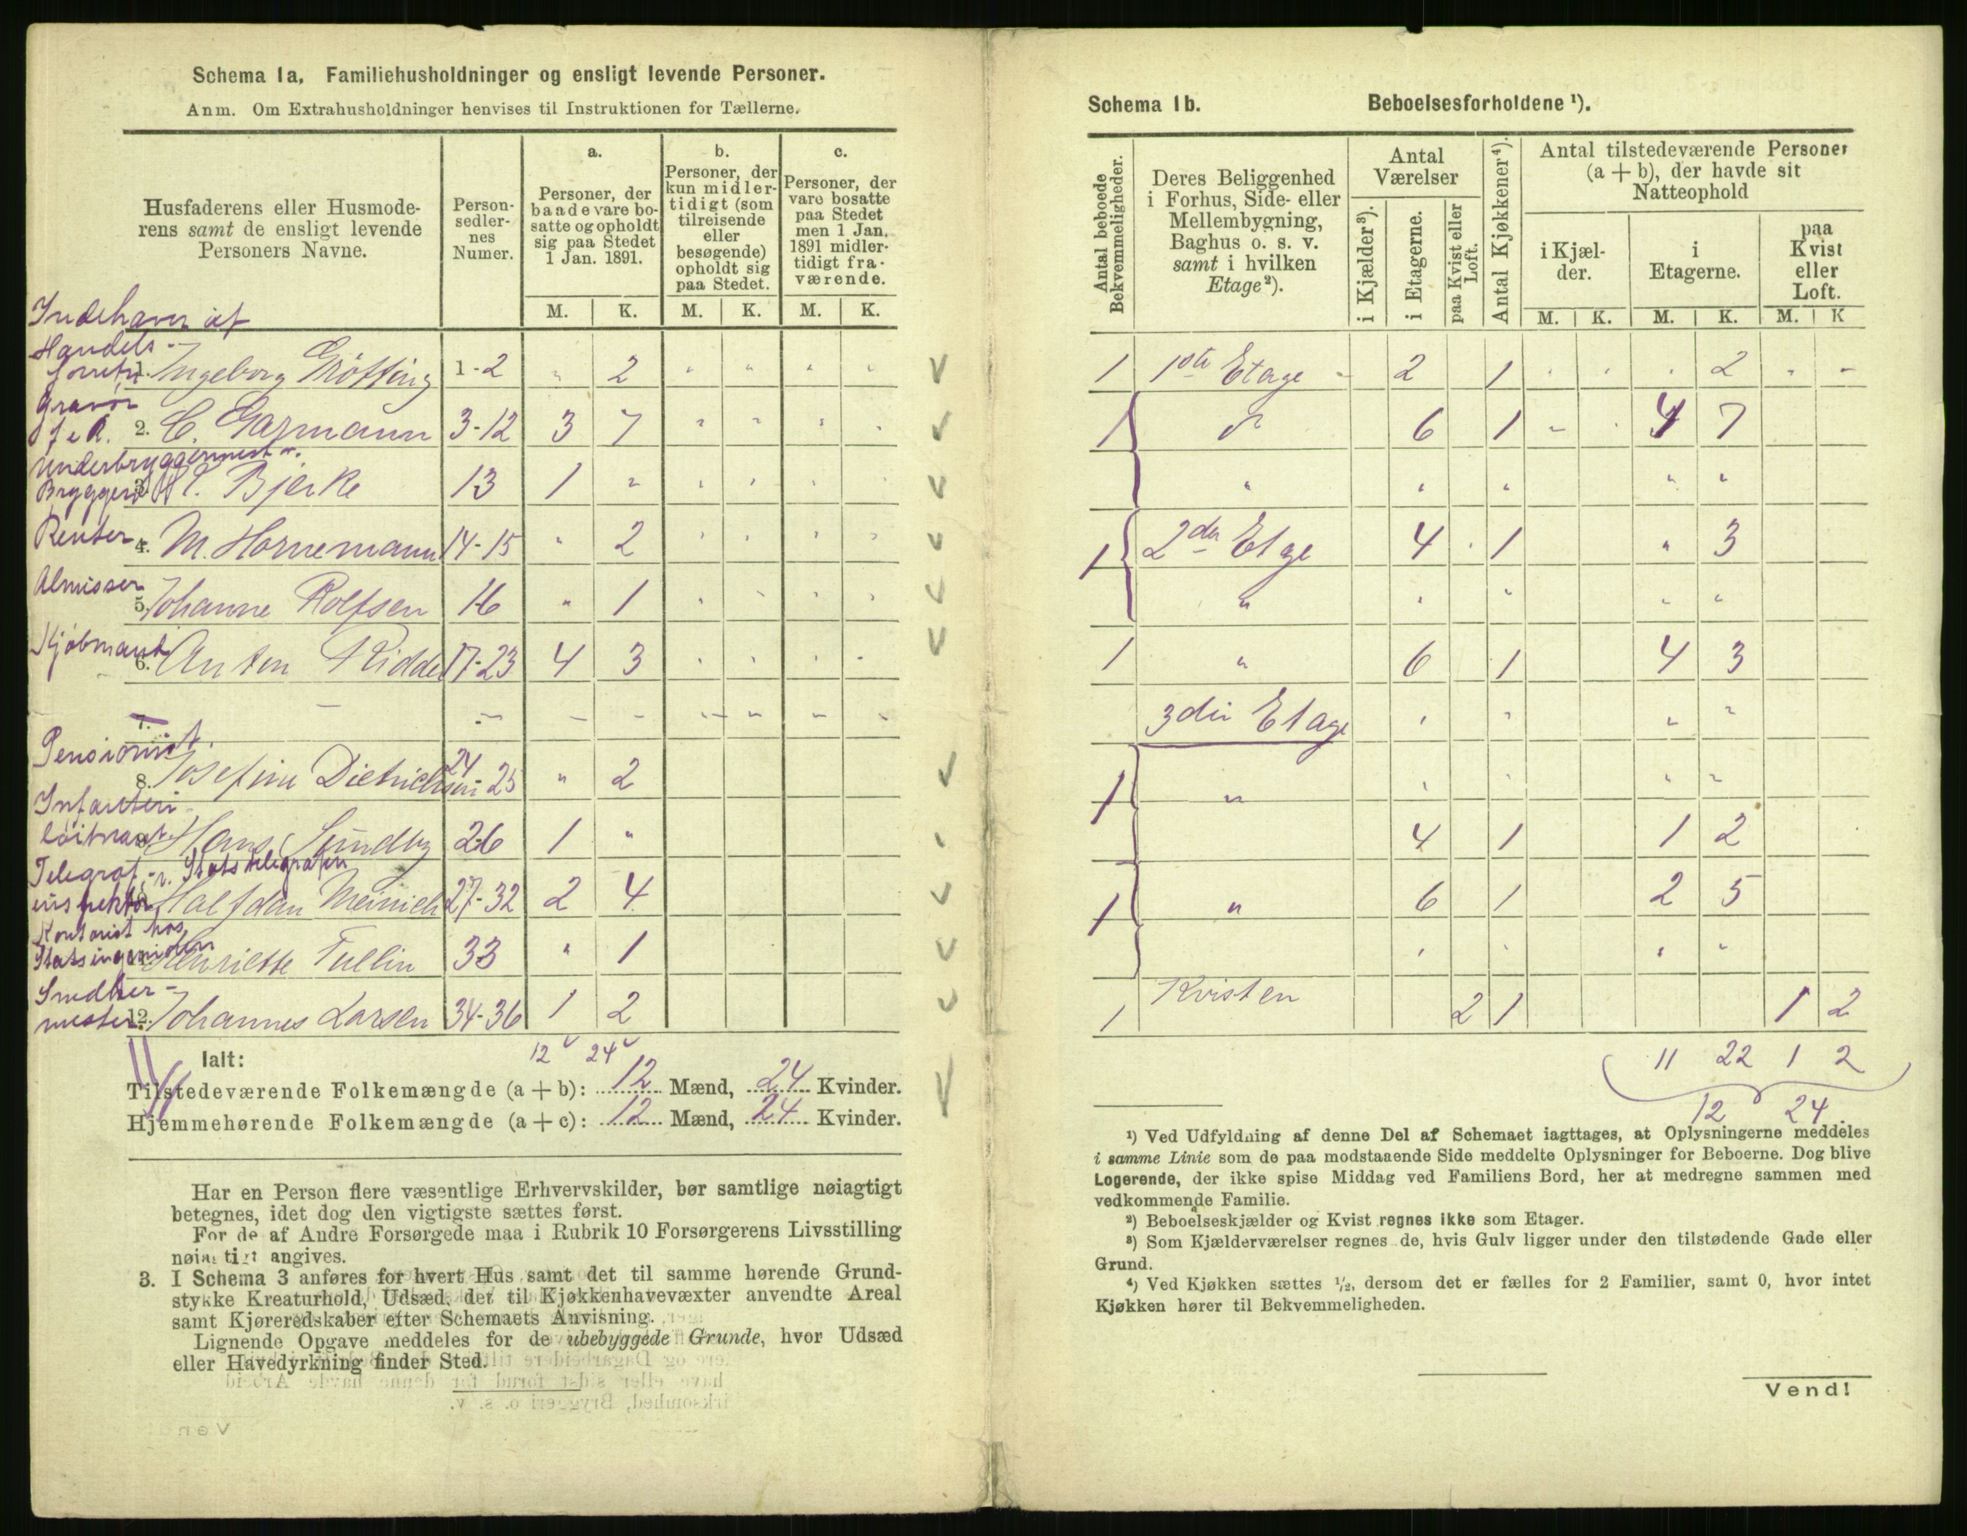 Schema 1a, Familiehusholdninger og ensligt levende Personer.
Anm. Om Extrahusholdninger henvises til Instruktionen for Tællerne.
Husfaderens eller Husmoderens samt de ensligt levende Personers Navne.
Person-sedler-nes Numer.
a.
Personer, der baade vare bosatte og opholdt sig paa Stedet 1 Jan. 1891.
b.
Personer, der kun midlertidigt (som tilreisende eller besøgende) opholdt sig paa Stedet.
c.
Personer, der vare bosatte paa Stedet men 1 Jan. 1891 midlertidigt fraværende.
M. K. M. K. M. K.
Indehaver af
Handels-
1. Ingeborg Grøtting 1-2 " 2 " " " "
Gravør
2. C. Garmann 3-12 3 7 " " " "
Underbryggermest
Bryggeri 3. E. Bjerke 13 1 " " " " "
Renter 4. M. Hornemann 14-15 " 2 " " " "
Almisser
5. Johanne Rolfsen 16 " 1 " " " "
Kjøbmand
6. Anton Ridder 17-23 4 3 " " " "
7. - - - - - - - -
Pensionist.
8. Josefine Dietrichsen 24-25 " 2
Infanteri
løitnant. 9. Hans Sundby 26 1 "
Telegraf- v. Statstelegrafen
inspektør Halfdan Meinich 27-32 2 4
Kontorist hos
Statsingeniøren Henriette Tullin 33 " 1
Smedker-
mester 12. Johannes Larsen 34-36 1 2
12 24
Ialt:
Tilstedeværende Folkemængde (a + b): 12 Mænd, 24 Kvinder.
Hjemmehørende Folkemængde (a + c): 12 Mænd, 24 Kvinder.
Har en Person flere væsentlige Erhvervskilder, bør samtlige nøiagtigt
betegnes, idet dog den vigtigste sættes først.
For de af Andre Forsørgede maa i Rubrik 10 Forsørgerens Livsstilling
nøiagtigt angives.
3. I Schema 3 anføres for hvert Hus samt det til samme hørende Grund-
stykke Kreaturhold, Udsæd, det til Kjøkkenhavevæxter anvendte Areal
samt Kjøreredskaber efter Schemaets Anvisning.
Lignende Opgave meddeles for de ubebyggede Grunde, hvor Udsæd
eller Havedyrkning finder Sted.
Schema 1b. Beboelsesforholdene ¹).
Antal beboede Bekvemmeligheder.
Deres Beliggenhed i Forhus, Side- eller Mellembygning, Baghus o. s. v. samt i hvilken Etage²).
Antal Værelser
i Kjælder³).
i Etagerne.
paa Kvist eller Loft.
Antal Kjøkkener⁴).
Antal tilstedeværende Personer (a + b), der havde sit Natteophold
i Kjælder.
i Etagerne.
paa Kvist eller Loft.
M. K. M. K. M. K
1 1ste Etage 2 1 " " " 2 " "
1 do 6 1 " " 4 7
" " " " "
1 2den Etage 4 1 " 3
" " " " "
1 " 6 1 4 3
3die Etage " " " "
1 " " " " "
4 1 1 2
1 " 6 1 2 5
" " " "
1 Kvisten 2 1 1 2
11 22 1 2
12 24
¹) Ved Udfyldning af denne Del af Schemaet iagttages, at Oplysningerne meddeles
i samme Linie som de paa modstaaende Side meddelte Oplysninger for Beboerne. Dog blive
Logerende, der ikke spise Middag ved Familiens Bord, her at medregne sammen med
vedkommende Familie.
²) Beboelseskjælder og Kvist regnes ikke som Etager.
³) Som Kjælderværelser regnes de, hvis Gulv ligger under den tilstødende Gade eller
Grund.
⁴) Ved Kjøkken sættes ¹/₂, dersom det er fælles for 2 Familier, samt 0, hvor intet
Kjøkken hører til Bekvemmeligheden.
Vend!